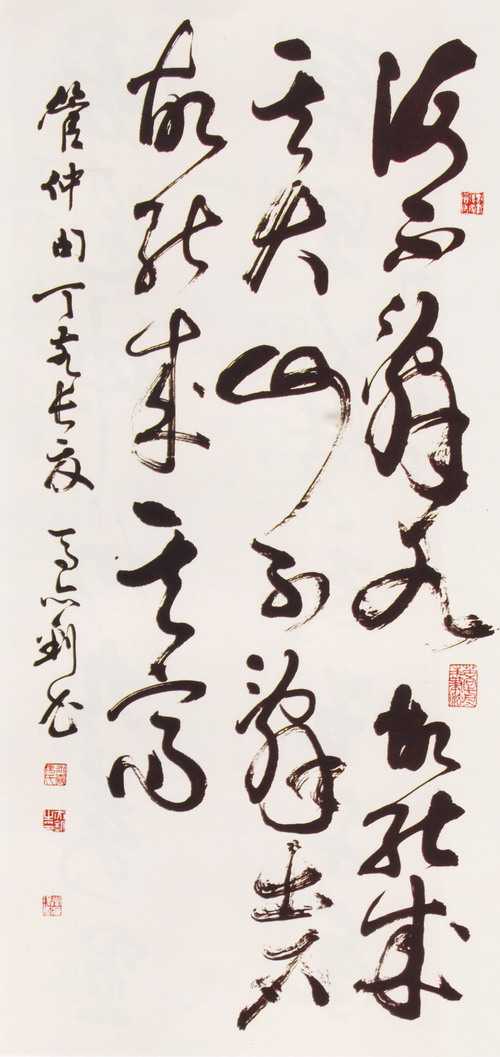 海不辭水故能成
其大山不辭土石
故能成其高
管仲句丁亥長夏馬亦釗書